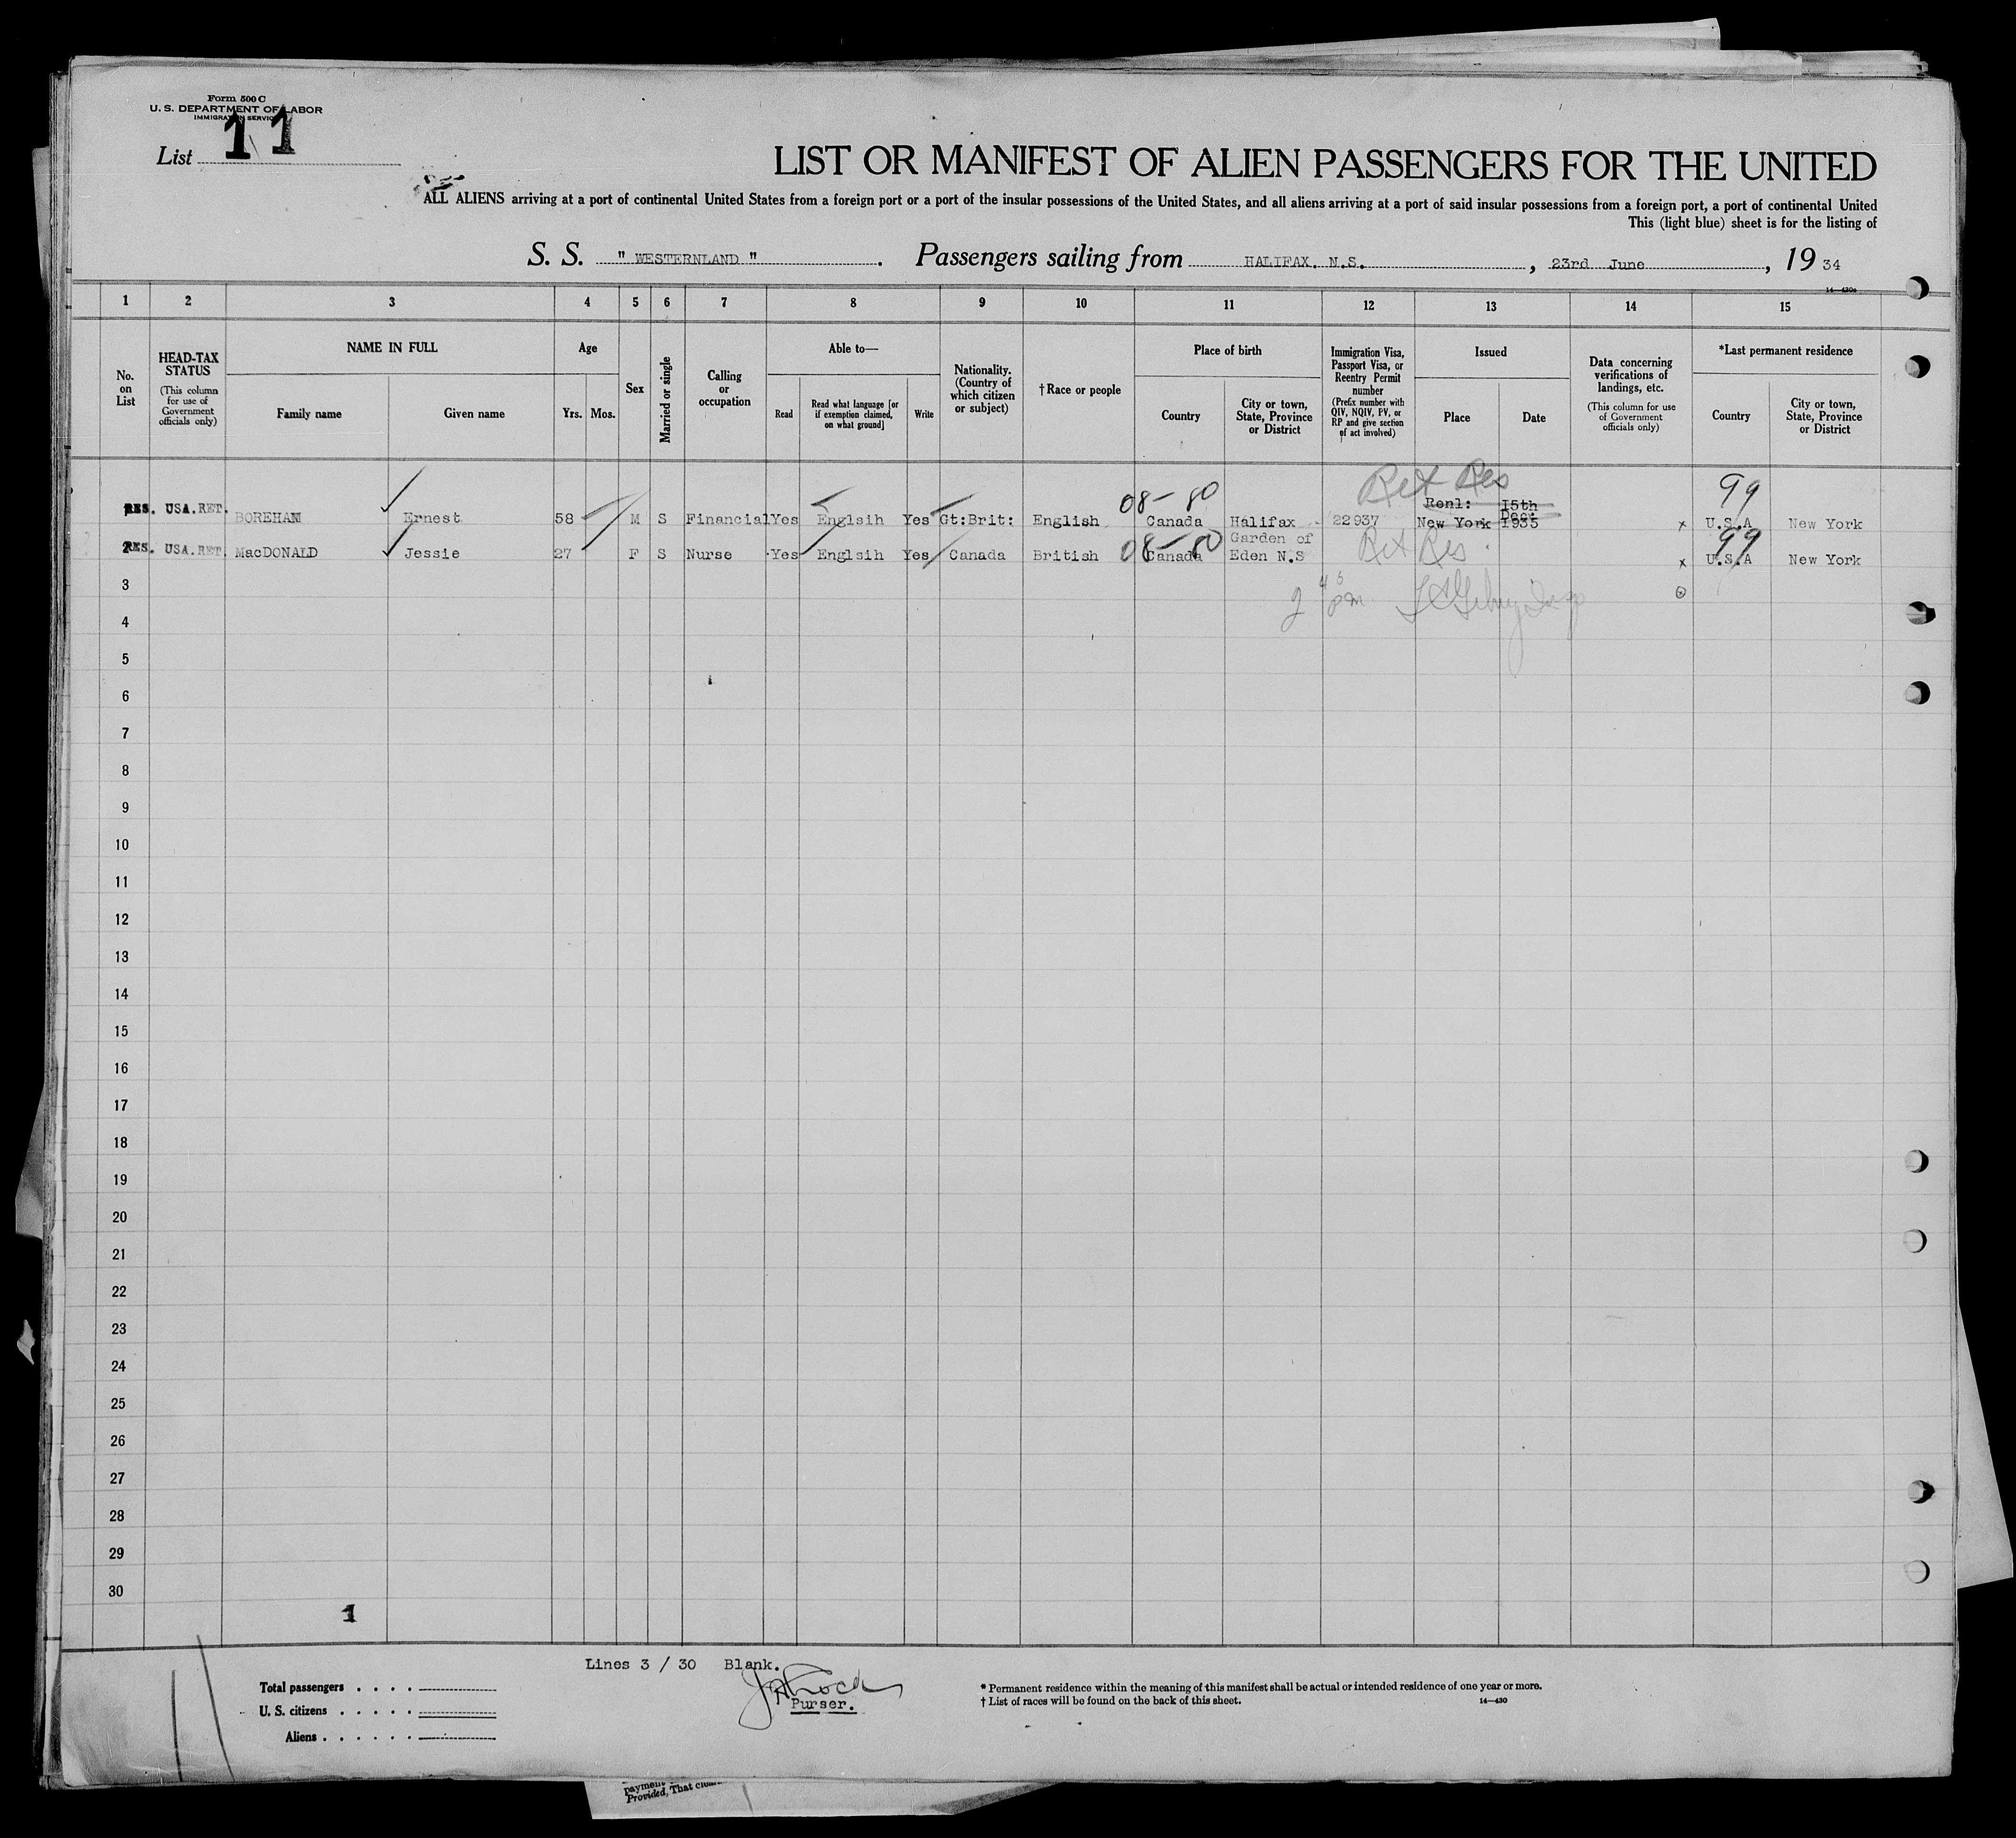 Form 500 C
U. S. DEPARTMENT OF LABOR
IMMIGRATION SERVICE
List 11
LIST OR MANIFEST OF ALIEN PASSENGERS FOR THE UNITED
ALL ALIENS arriving at a port of continental United States from a foreign port or a port of the insular possessions of the United States, and all aliens arriving at a port of said insular possessions from a foreign port, a port of continental United
This (light blue) sheet is for the listing of
S. S. " WESTERNLAND ". Passengers sailing from HALIFAX, N.S. , 23rd June , 19 34
14—430a
1 2 3 4 5 6 7 8 9 10 11 12 13 14 15
No. on List
HEAD-TAX STATUS
(This column for use of Government officials only)
NAME IN FULL
Family name Given name
Age
Yrs. Mos.
Sex
Married or single
Calling or occupation
Able to—
Read
Read what language [or if exemption claimed, on what ground]
Write
Nationality. (Country of which citizen or subject)
† Race or people
Place of birth
Country
City or town, State, Province or District
Immigration Visa, Passport Visa, or Reentry Permit number
(Prefix number with QIV, NQIV, PV, or RP and give section of act involved)
Issued
Place Date
Data concerning verifications of landings, etc.
(This column for use of Government officials only)
*Last permanent residence
Country
City or town, State, Province or District
08- 80 Ret Res 99
RES. USA.RET. BOREHAM Ernest 58 M S Financial Yes Englsih Yes Gt:Brit: English Canada Halifax 22937 Renl: New York 15th Dec: 1935 x U.S.A New York
RES. USA.RET. MacDONALD Jessie 27 F S Nurse Yes Englsih Yes Canada British 08- 80 Canada Garden of Eden N.S Ret Res x 99 U.S.A New York
3 2 45 pm
4
5
6
7
8
9
10
11
12
13
14
15
16
17
18
19
20
21
22
23
24
25
26
27
28
29
30
1
Lines 3 / 30 Blank.
Purser.
Total passengers . . . .
U. S. citizens . . . . .
Aliens . . . . . .
* Permanent residence within the meaning of this manifest shall be actual or intended residence of one year or more.
† List of races will be found on the back of this sheet.
14—430
payment
Provided, That